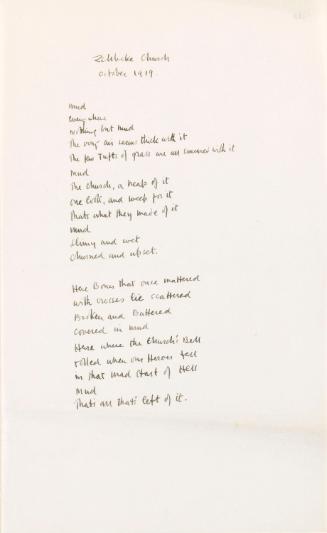 Zillebeke Church
October 1919.
Mud
Everywhere
nothing but mud
The very air seems thick with it
The few Tufts of grass are all smeared with it
Mud
The Church, a heap of it
One look, and weep for it
Thats what they made of it
Mud
Slimy and wet
Churned and upset.
Here Bones that once mattered
with crosses lie scattered
Broken and Battered
covered in mud
Here where the Church's Bell
tolled when our Heroes fell
in that mad start of Hell
Mud
Thats all thats left of it.